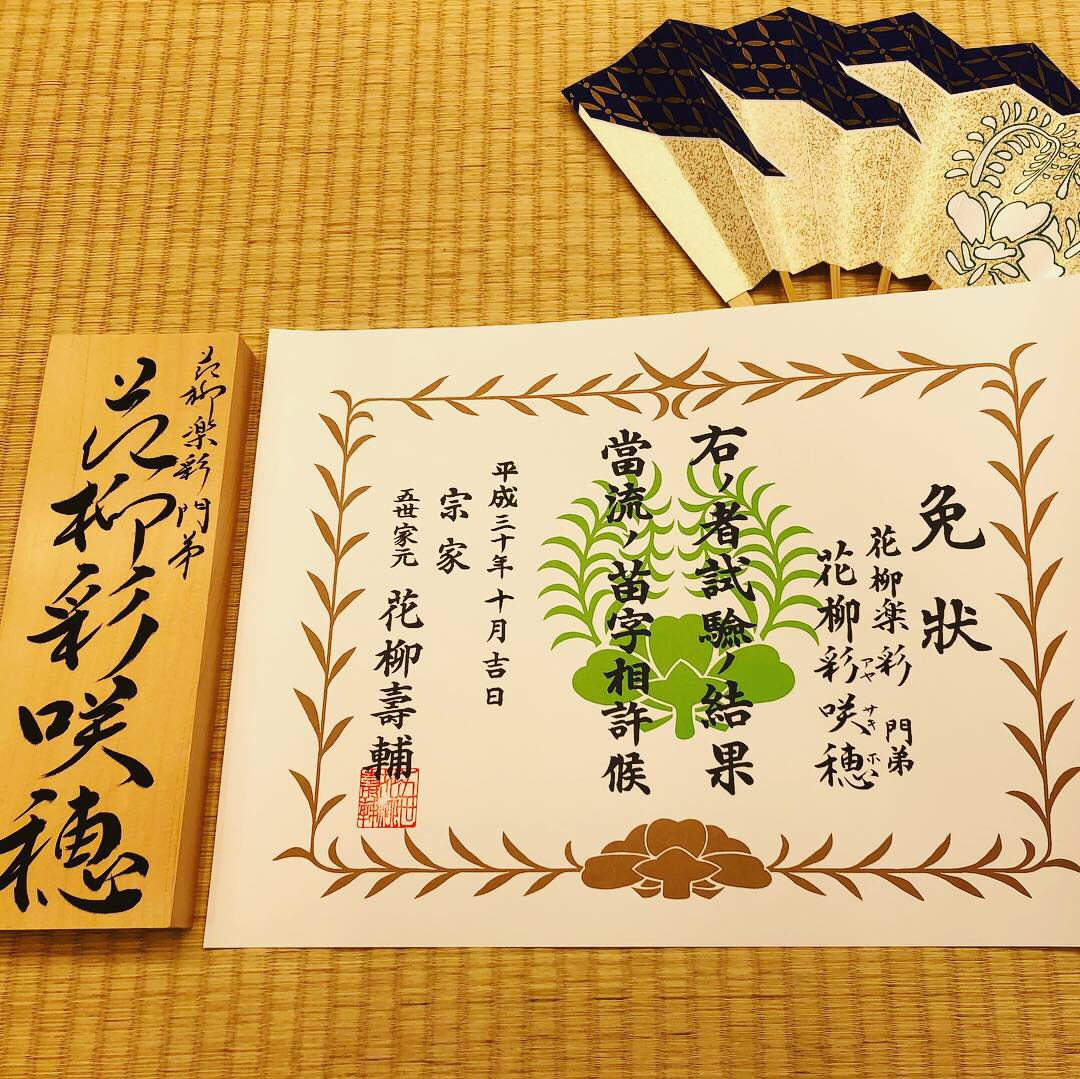 免状
花柳楽彩 門弟
花柳彩咲穂
アヤ サキ ホ
右ノ者試驗ノ結果
當流ノ苗字相許候
平成三十年十月吉日
宗家
五世家元 花柳壽輔
花柳楽彩門弟
花柳彩咲穂